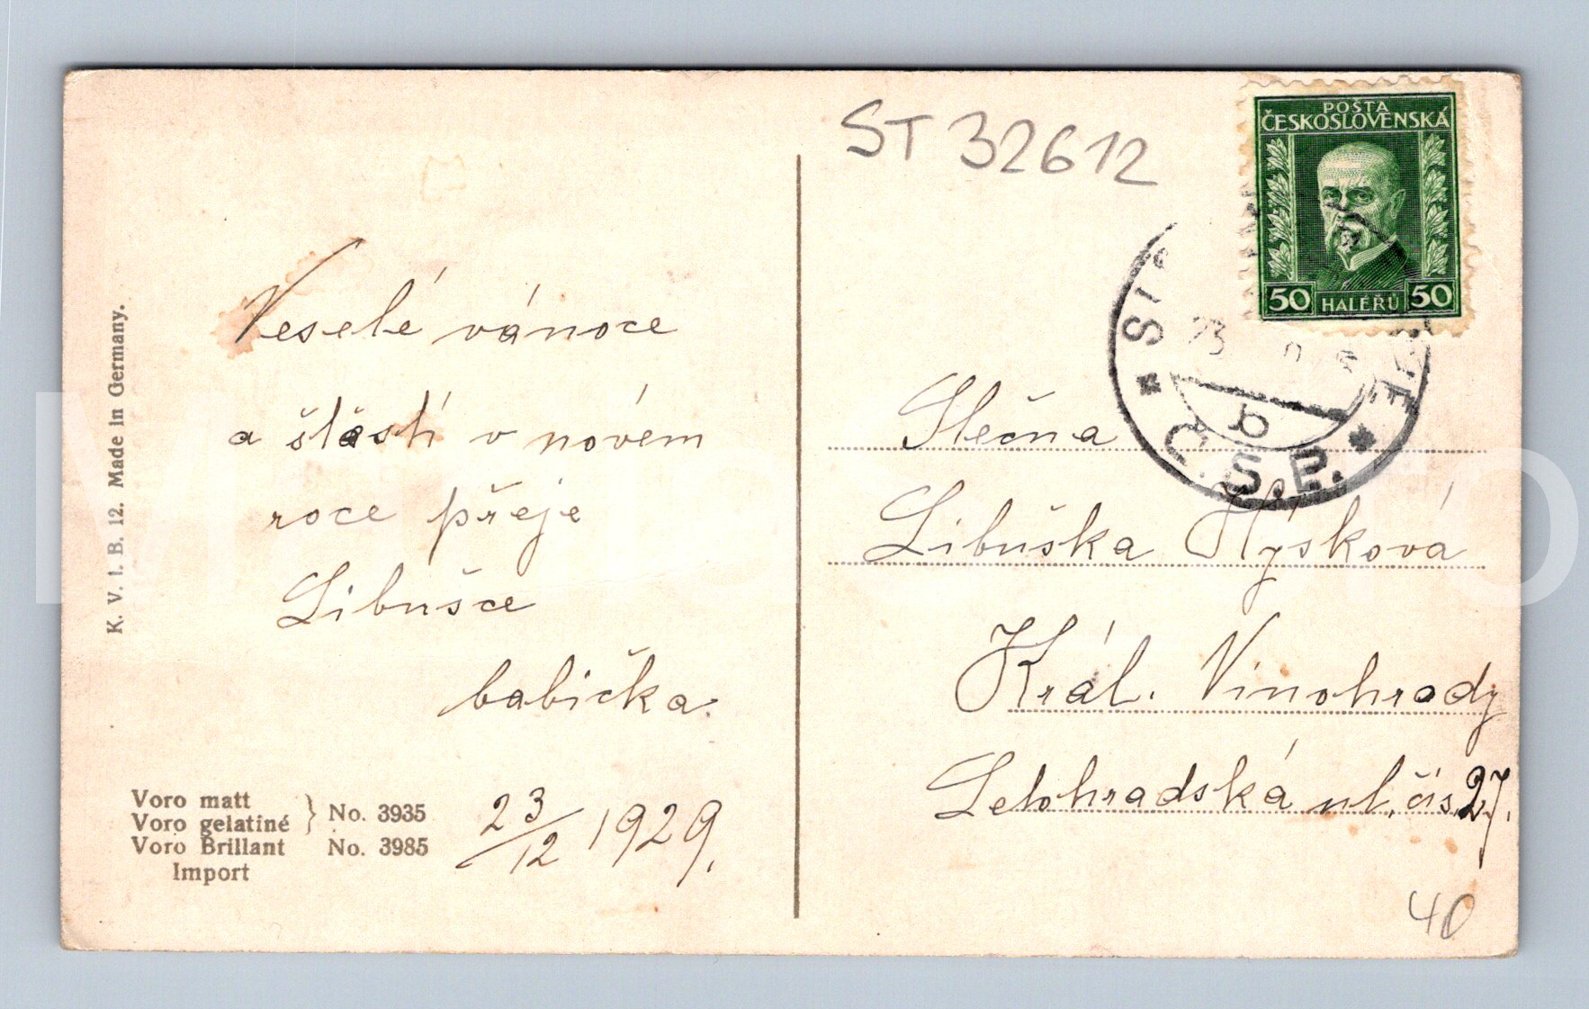 ST 32612
POŠTA
ČESKOSLOVENSKÁ
50 HALÉŘŮ 50
23
b
Č.S.P.
Veselé vánoce
a štěstí v novém
roce přeje
Libušce
babička.
23/12 1929.
Slečna
Libuška Hýsková
Král. Vinohrady
Letohradská ul. čís. 27.
40
K. V. i. B. 12. Made in Germany.
Voro matt
Voro gelatiné } No. 3935
Voro Brillant No. 3985
Import